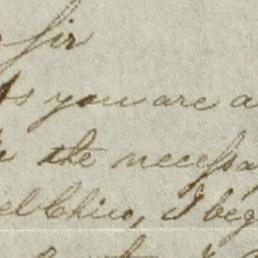 Sir
As you are a
the necessa
el Chico, I beg